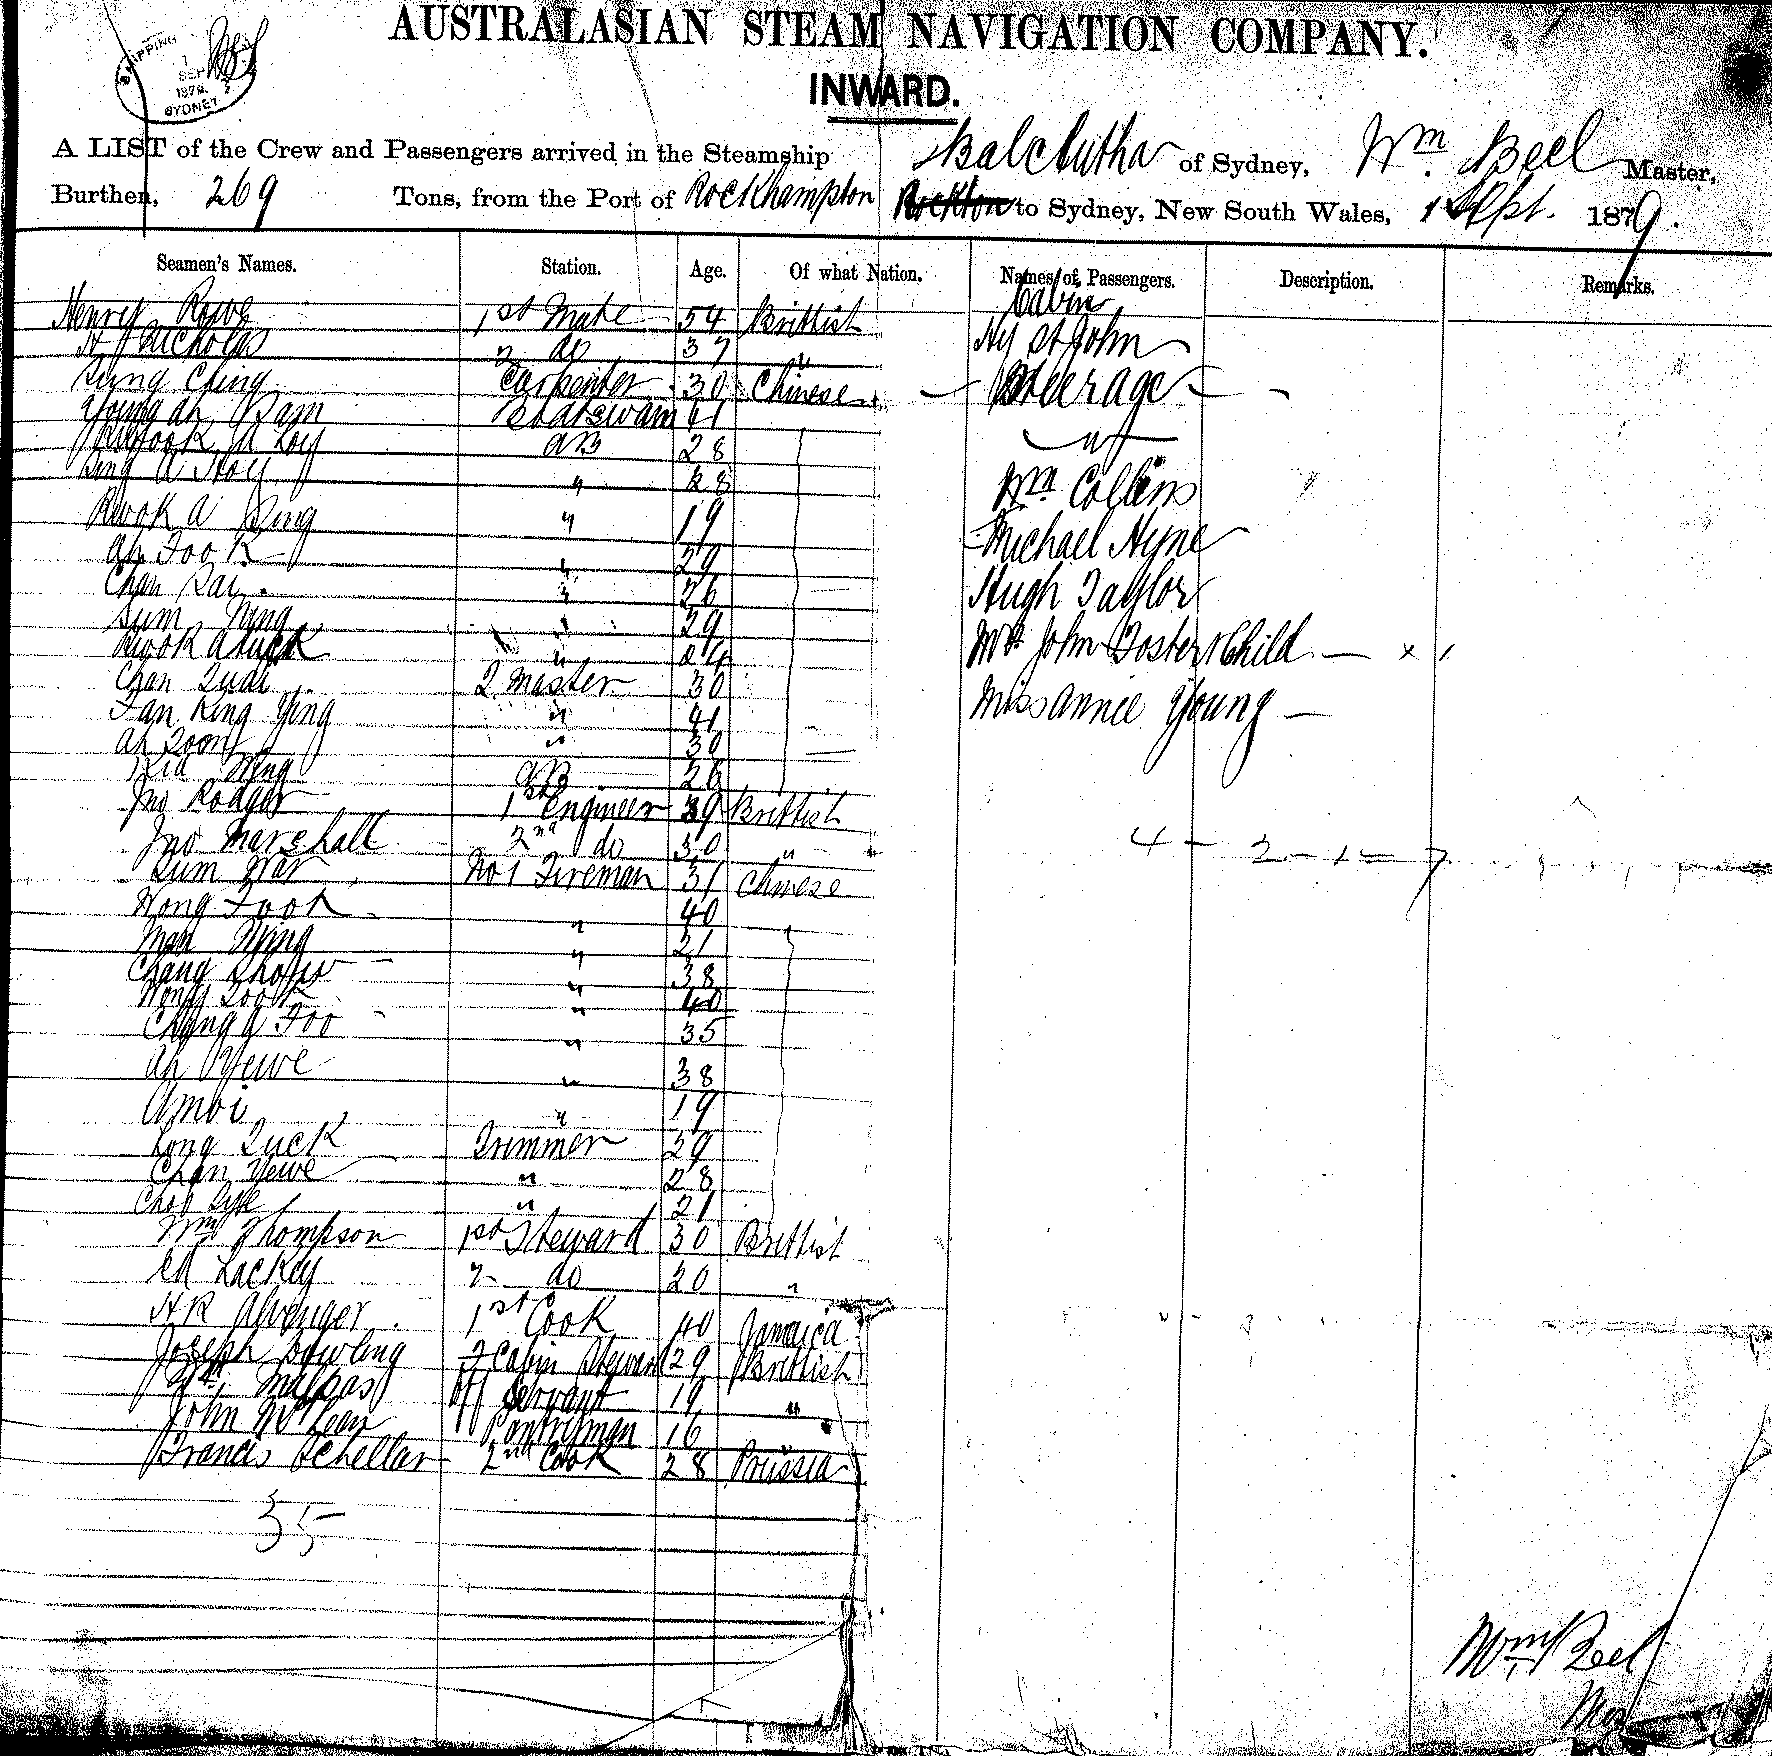 AUSTRALASIAN STEAM NAVIGATION COMPANY.
SHIPPING
1 SEP 1879
SYDNEY
INWARD.
A LIST of the Crew and Passengers arrived in the Steamship Balclutha of Sydney, Wm Beel Master,
Burthen, 269 Tons, from the Port of Rockhampton Rockton to Sydney, New South Wales, 1 Sept. 1879.
Seamen's Names. Station. Age. Of what Nation. Names of Passengers. Description. Remarks.
Henry Rowe 1st Mate 54 Brittish
H Nicholas 2 do 37 "
Kung Ching Carpenter 30 Chinese
Young ah Sam Boatswain 41
A Loy AB 28
A Hoy " 28
Kwook A Sing " 19
Ah Fook " 29
Chan Kai " 26
Sum Ning " 29
Kwook A Luck " 24
Chan Quai 2 Master 30
Fan King Ying " 41
Ah Soon " 30
Ning AB 26
Jno Rodger 1st Engineer 39 Brittish
Jno Marshall 2nd do 30 "
Sum War No 1 Fireman 31 Chinese
Wong Fook " 40
Man Ning " 21
Chang Show " 38
Wong Look " 40
Chung A Foo " 35
Ah Yewe " 38
Amoi " 19
Long Luck Trimmer 29
Chan Yewe " 28
Choo " 21
Wm Thompson 1st Steward 30 Brittish
Ed Lackey 2 do 20 "
H R 1st Cook 40 Jamaica
Joseph Dowling 2 Cabin Steward 29 Brittish
Malpas Servant 19 "
John McLean Pantryman 16 "
Francis Schellar 2nd Cook 28 Prussia
35
Cabin
Hy St John
Steerage
Wm Collins
Michael Hyne
Hugh Taylor
Mrs John Foster & Child — x 1
Miss Annie Young —
4 - 2 - 1 = 7
Wm Beel